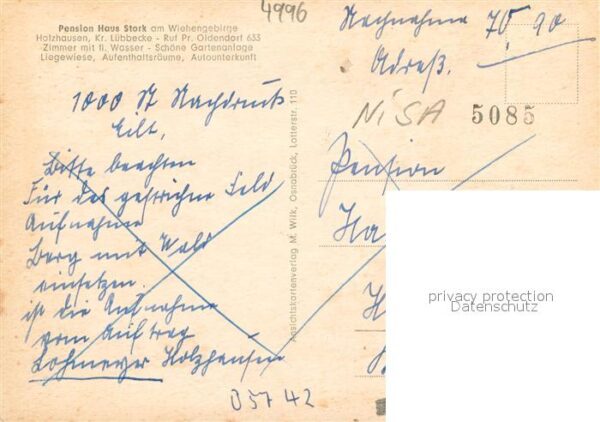 4996
Pension Haus Stork am Wiehengebirge
Holzhausen, Kr. Lübbecke - Ruf Pr. Oldendorf 633
Zimmer mit fl. Wasser - Schöne Gartenanlage
Liegewiese, Aufenthaltsräume, Autounterkunft
1000 St Nachdruck
Eilt,
Bitte beachten
Für das gestrichne Feld
Aufnahme
Berg mit Wald
einsetzen.
ist die Aufnahme
vom Auftrag
Lohmeyer Holzhausen
B 57 42
Ansichtskartenverlag M. Wilk, Osnabrück, Lotterstr. 110
Nachnahme 70 90
Adreß.
NiSA
5085
Pension
Ha
H
privacy protection
Datenschutz